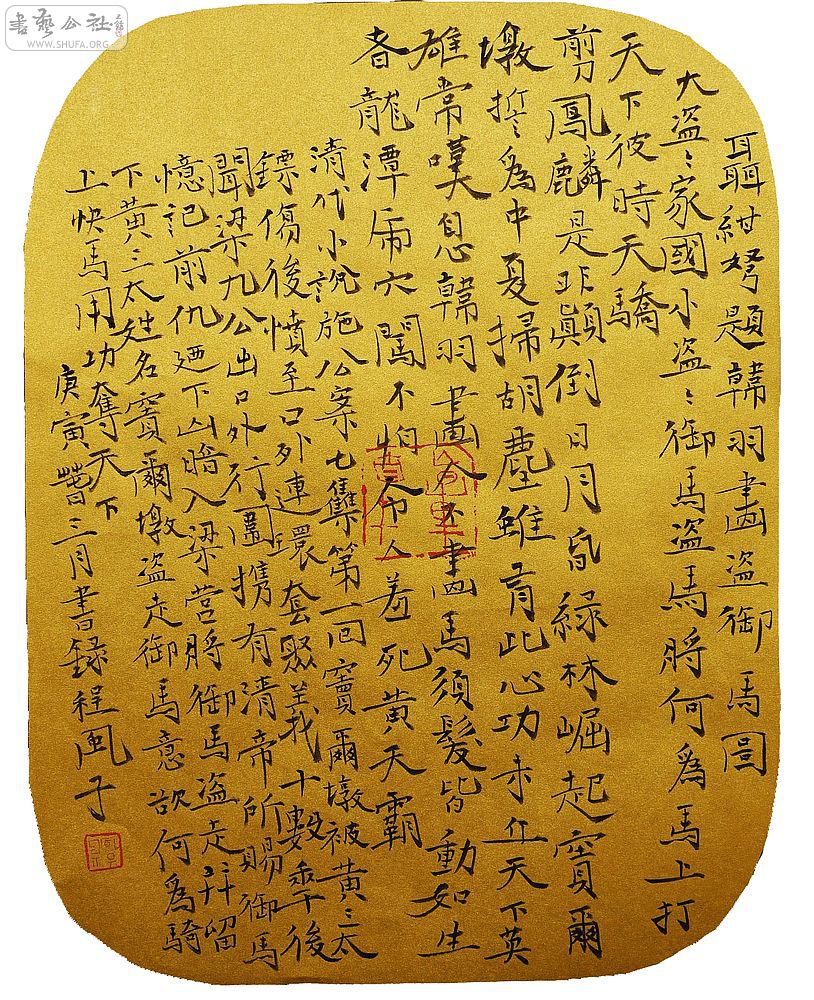 書藝公社
WWW.SHUFA.ORG
聶紺弩題韓羽畫盜御馬圖
大盜〻家國小盜〻御馬盜馬將何為馬上打
天下彼時天驕
剪鳳麟是非顛倒日月昏綠林崛起竇爾
墩誓爲中夏掃胡塵雖有此心功未立天下英
雄常嘆息韓羽畫人不畫馬須髮皆動如生
者龍潭虎穴闖不怕令人羞死黃天霸
清代小說施公案七集第一回竇爾墩被黃三太
鏢傷後憤至口外連環套聚義十數年後
聞梁九公出口外行圍攜有清帝所賜御馬
憶記前仇迺下山暗入梁營將御馬盜走並留
下黃三太姓名竇爾墩盜走御馬意欲何為騎
上快馬用功奪天下
庚寅暮三月書錄程風子